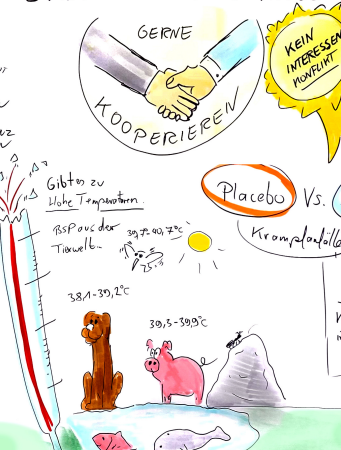 GERNE
KOOPERIEREN
KEIN
INTERESSEN
KONFLIKT
Gibt es zu
Hohe Temperaturen.
BSP aus der
Tierwelt..
39,7-40,7°C
38,1-39,2°C
39,3-39,9°C
Placebo Vs.
Krampfanfälle